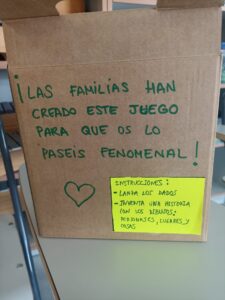 ¡LAS FAMILIAS HAN
CREADO ESTE JUEGO
PARA QUE OS LO
PASEIS FENOMENAL!
INSTRUCCIONES:
- LANZA LOS DADOS
- INVENTA UNA HISTORIA
CON LOS DIBUJOS:
PERSONAJES, LUGARES Y
COSAS